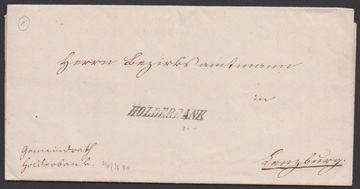 1
Herrn Bezirksamtmann
in
HOLDERBANK
Gemeindrath
Holderbank.
Lenzburg.